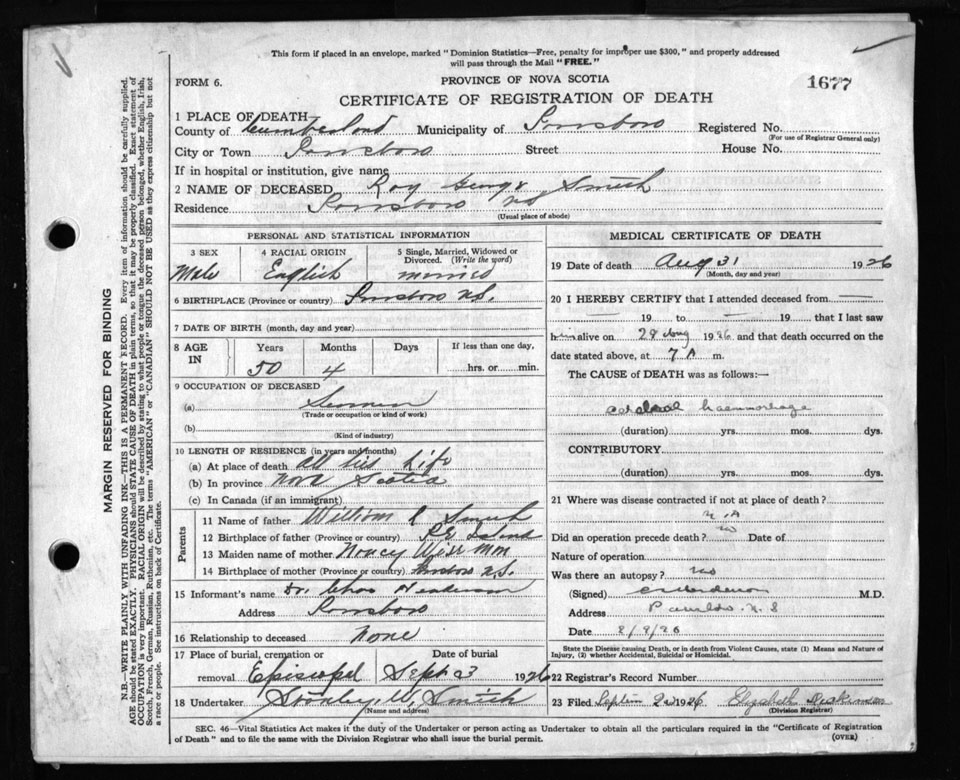 This form if placed in an envelope, marked "Dominion Statistics—Free, penalty for improper use $300," and properly addressed
will pass through the Mail "FREE."
FORM 6.
PROVINCE OF NOVA SCOTIA
1677
CERTIFICATE OF REGISTRATION OF DEATH
1 PLACE OF DEATH
County of Cumberland Municipality of Parrsboro Registered No.
(For use of Registrar General only)
City or Town Parrsboro Street House No.
If in hospital or institution, give name
2 NAME OF DECEASED Roy George Smith
Residence Parrsboro NS
(Usual place of abode)
PERSONAL AND STATISTICAL INFORMATION
3 SEX 4 RACIAL ORIGIN 5 Single, Married, Widowed or
Divorced. (Write the word)
Male English married
6 BIRTHPLACE (Province or country) Parrsboro N.S.
7 DATE OF BIRTH (month, day and year)
8 AGE IN Years Months Days If less than one day,
50 4 hrs. or min.
9 OCCUPATION OF DECEASED
(a) Seaman
(Trade or occupation or kind of work)
(b)
(Kind of industry)
10 LENGTH OF RESIDENCE (in years and months)
(a) At place of death all his life
(b) In province Nova Scotia
(c) In Canada (if an immigrant)
Parents
11 Name of father William Smith
12 Birthplace of father (Province or country) P.E. Island
13 Maiden name of mother Nancy
14 Birthplace of mother (Province or country) Parrsboro N.S.
15 Informant's name Dr. Chas Henderson
Address Parrsboro
16 Relationship to deceased None
17 Place of burial, cremation or removal Date of burial
Episcopal Sept 3 1926
18 Undertaker Stanley W. Smith
(Name and address)
MEDICAL CERTIFICATE OF DEATH
19 Date of death Aug 31 1926
(Month, day and year)
20 I HEREBY CERTIFY that I attended deceased from —
— 19 to — 19 that I last saw
him alive on 28 Aug 1926 and that death occurred on the
date stated above, at 7 A m.
The CAUSE of DEATH was as follows:—
cerebral haemorrhage
(duration) yrs. mos. dys.
CONTRIBUTORY
(duration) yrs. mos. dys.
21 Where was disease contracted if not at place of death?
N.A
Did an operation precede death? no Date of
Nature of operation
Was there an autopsy? no
(Signed) M.D.
Address N.S
Date 2/9/26
State the Disease causing Death, or in death from Violent Causes, state (1) Means and Nature of
Injury, (2) whether Accidental, Suicidal or Homicidal.
22 Registrar's Record Number
23 Filed 2nd 1926 Elizabeth
(Division Registrar)
SEC. 46—Vital Statistics Act makes it the duty of the Undertaker or person acting as Undertaker to obtain all the particulars required in the "Certificate of Registration
of Death" and to file the same with the Division Registrar who shall issue the burial permit.
(OVER)
MARGIN RESERVED FOR BINDING
N.B.—WRITE PLAINLY WITH UNFADING INK—THIS IS A PERMANENT RECORD. Every item of information should be carefully supplied.
AGE should be stated EXACTLY. PHYSICIANS should STATE CAUSE OF DEATH in plain terms, so that it may be properly classified. Exact statement of
OCCUPATION is very important. RACIAL ORIGIN will be described by stating to what people or tongue the deceased person belonged, whether English, Irish,
Scotch, French, German, Russian, Ruthenian, etc. The terms "AMERICAN" or "CANADIAN" SHOULD NOT BE USED as they express citizenship but not
a race or people. See instructions on back of Certificate.